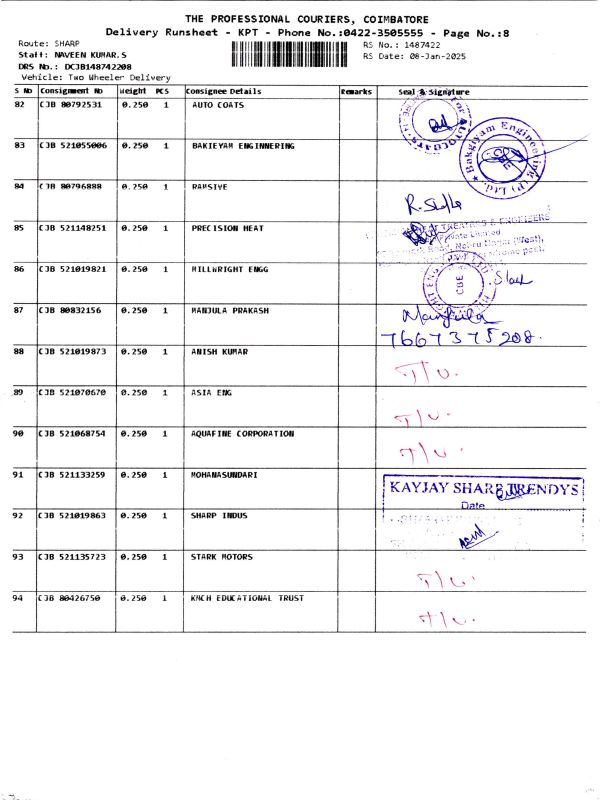 THE PROFESSIONAL COURIERS, COIMBATORE
Delivery Runsheet - KPT - Phone No.:0422-3505555 - Page No.:8
Route: SHARP RS No.: 1487422
Staff: NAVEEN KUMAR.S RS Date: 08-Jan-2025
DRS No.: DCJB148742208
Vehicle: Two Wheeler Delivery
S No Consignment No Weight PCS Consignee Details Remarks Seal & Signature
82 CJB 80792531 0.250 1 AUTO COATS
83 CJB 521055006 0.250 1 BAKIEYAM ENGINNERING
Bakgiyam Engineering (P) Ltd.
84 CJB 80796888 0.250 1 RAMSIVE
85 CJB 521148251 0.250 1 PRECISION HEAT
Private Limited
86 CJB 521019821 0.250 1 MILLWRIGHT ENGG
CBE
87 CJB 80832156 0.250 1 MANJULA PRAKASH Manjula
7667375208
88 CJB 521019873 0.250 1 ANISH KUMAR
89 CJB 521070670 0.250 1 ASIA ENG
90 CJB 521068754 0.250 1 AQUAFINE CORPORATION
91 CJB 521133259 0.250 1 MOHANASUNDARI
KAYJAY SHARP TRENDYS
Date
92 CJB 521019863 0.250 1 SHARP INDUS
93 CJB 521135723 0.250 1 STARK MOTORS
94 CJB 80426750 0.250 1 KMCH EDUCATIONAL TRUST